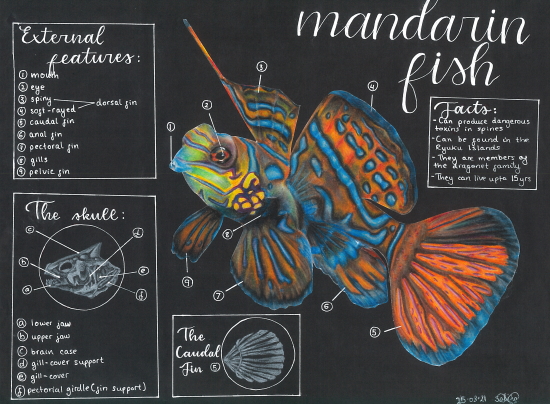 mandarin
fish
External
features:
① mouth
② eye
③ spiny
④ soft-rayed
dorsal fin
⑤ caudal fin
⑥ anal fin
⑦ pectoral fin
⑧ gills
⑨ pelvic fin
Facts:
- Can produce dangerous
toxins in spines
- Can be found in the
Ryuku Islands
- They are members of
the dragonet family
- They can live upto 15yrs
①
②
③
④
⑤
⑥
⑦
⑧
⑨
The skull:
ⓒ
ⓓ
ⓑ
ⓔ
ⓐ
ⓕ
ⓐ lower jaw
ⓑ upper jaw
ⓒ brain case
ⓓ gill-cover support
ⓔ gill-cover
ⓕ pectorial girdle (fin support)
The
Caudal
Fin ⑤